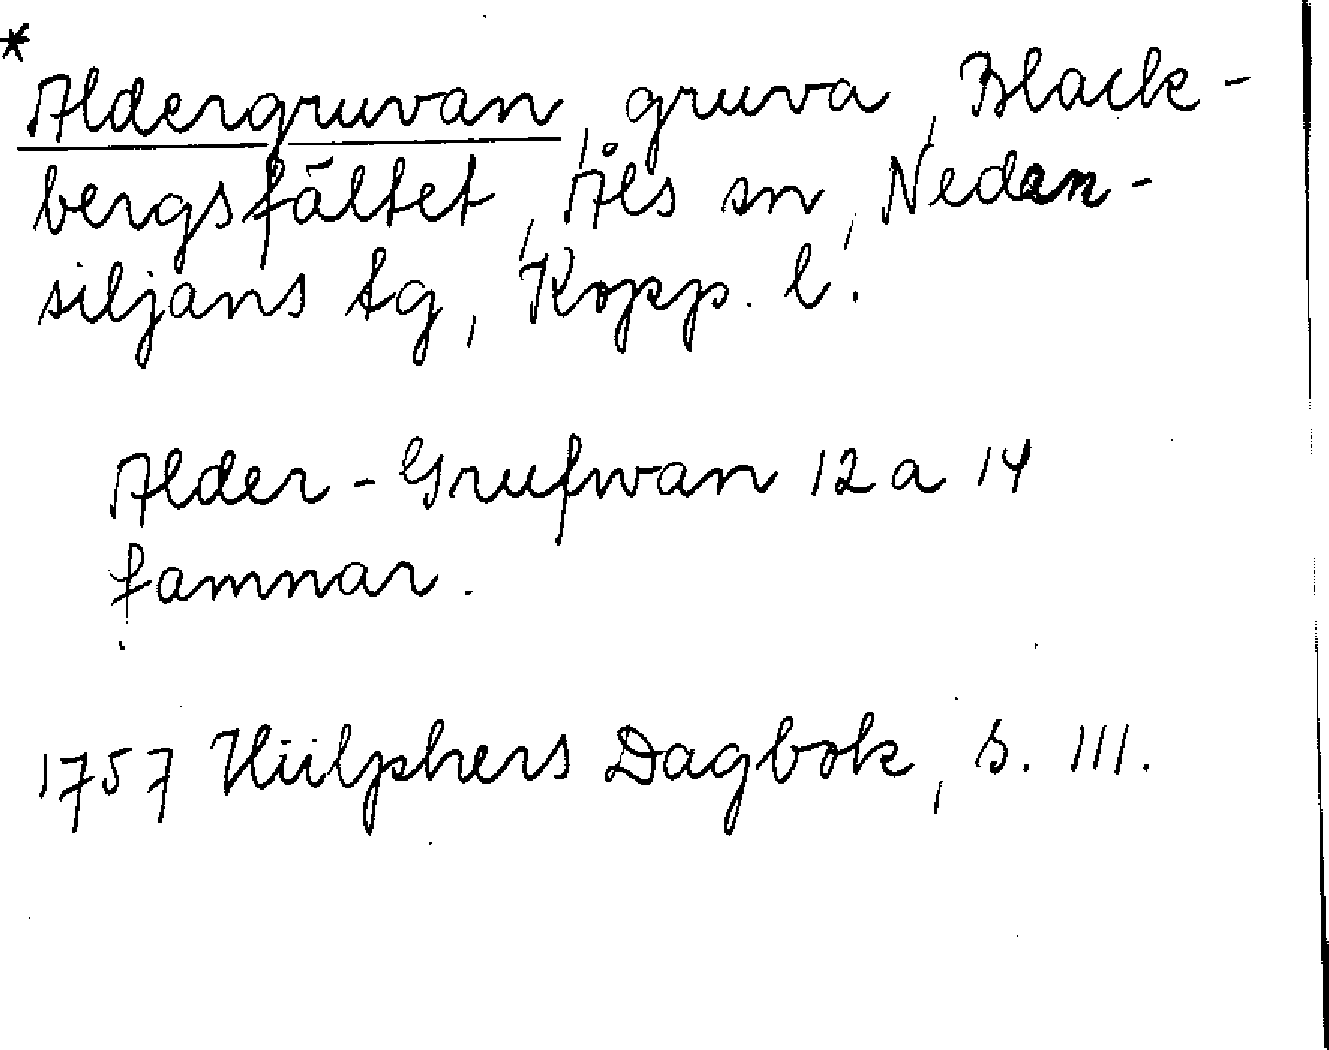 *
Aldergruvan, gruva, Black-
bergsfältet, Åls sn, Nedan-
siljans tg, Kopp. l.
Alder-Grufwan 12 a 14
famnar.
1757 Hülphers Dagbok, s. 111.